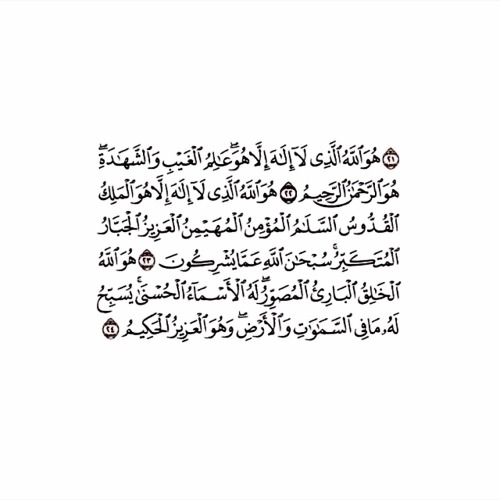 ٢١ هُوَ ٱللَّهُ ٱلَّذِى لَآ إِلَٰهَ إِلَّا هُوَ ۖ عَٰلِمُ ٱلْغَيْبِ وَٱلشَّهَٰدَةِ ۖ
هُوَ ٱلرَّحْمَٰنُ ٱلرَّحِيمُ ٢٢ هُوَ ٱللَّهُ ٱلَّذِى لَآ إِلَٰهَ إِلَّا هُوَ ٱلْمَلِكُ
ٱلْقُدُّوسُ ٱلسَّلَٰمُ ٱلْمُؤْمِنُ ٱلْمُهَيْمِنُ ٱلْعَزِيزُ ٱلْجَبَّارُ
ٱلْمُتَكَبِّرُ ۚ سُبْحَٰنَ ٱللَّهِ عَمَّا يُشْرِكُونَ ٢٣ هُوَ ٱللَّهُ
ٱلْخَٰلِقُ ٱلْبَارِئُ ٱلْمُصَوِّرُ ۖ لَهُ ٱلْأَسْمَآءُ ٱلْحُسْنَىٰ ۚ يُسَبِّحُ
لَهُۥ مَا فِى ٱلسَّمَٰوَٰتِ وَٱلْأَرْضِ ۖ وَهُوَ ٱلْعَزِيزُ ٱلْحَكِيمُ ٢٤